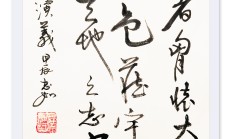 者胷懷大
包藏宇
天地之志
演義 甲辰